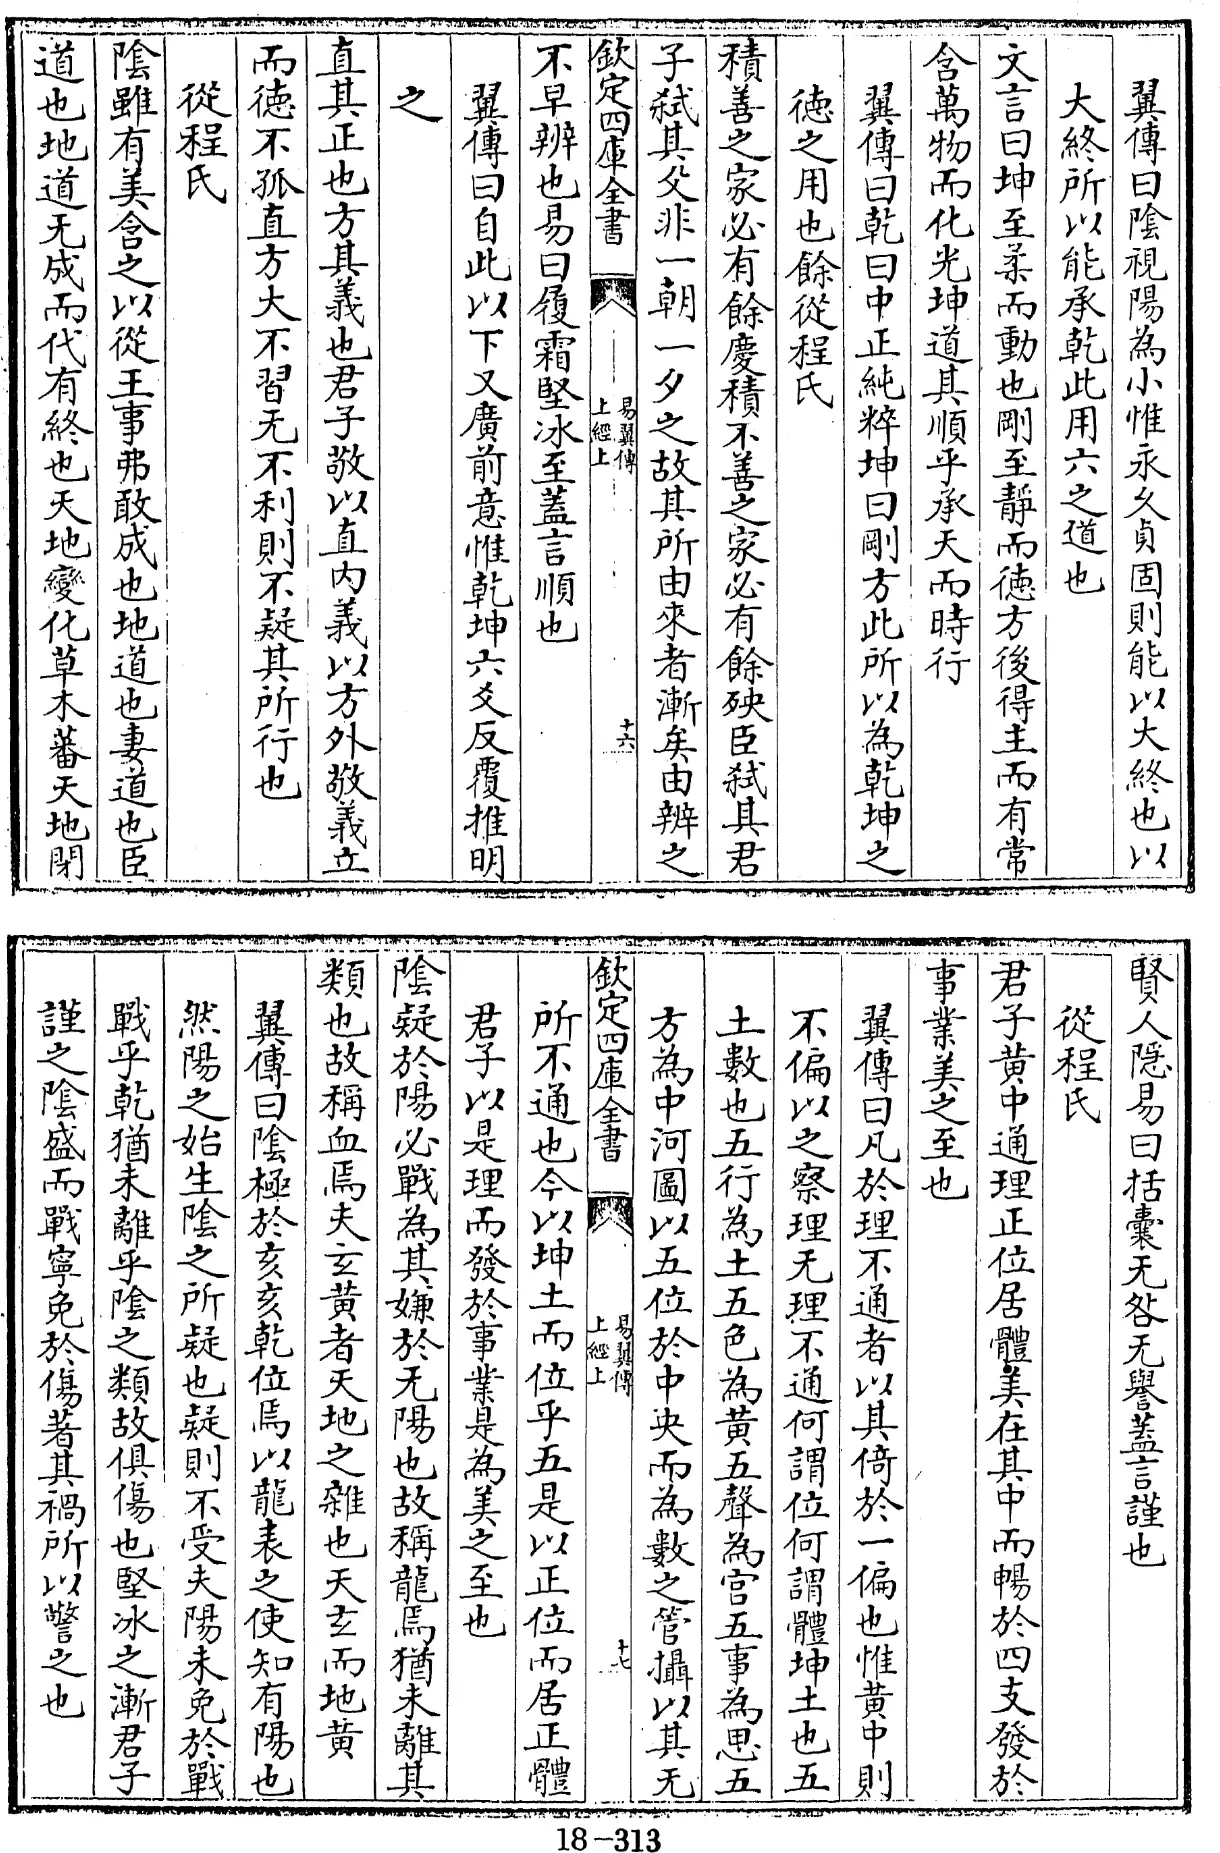 翼傳曰陰視陽為小惟永久貞固則能以大終也以
大終所以能承乾此用六之道也
文言曰坤至柔而動也剛至靜而德方後得主而有常
含萬物而化光坤道其順乎承天而時行
翼傳曰乾曰中正純粹坤曰剛方此所以為乾坤之
德之用也餘從程氏
積善之家必有餘慶積不善之家必有餘殃臣弑其君
子弑其父非一朝一夕之故其所由來者漸矣由辨之
欽定四庫全書
易翼傳
上經上
十六
不早辨也易曰履霜堅冰至蓋言順也
翼傳曰自此以下又廣前意惟乾坤六爻反覆推明
之
直其正也方其義也君子敬以直內義以方外敬義立
而德不孤直方大不習无不利則不疑其所行也
從程氏
陰雖有美含之以從王事弗敢成也地道也妻道也臣
道也地道无成而代有終也天地變化草木蕃天地閉
賢人隱易曰括囊无咎无譽蓋言謹也
從程氏
君子黃中通理正位居體美在其中而暢於四支發於
事業美之至也
翼傳曰凡於理不通者以其倚於一偏也惟黃中則
不偏以之察理无理不通何謂位何謂體坤土也五
土數也五行為土五色為黃五聲為宮五事為思五
方為中河圖以五位於中央而為數之管攝以其无
欽定四庫全書
易翼傳
上經上
十七
所不通也今以坤土而位乎五是以正位而居正體
君子以是理而發於事業是為美之至也
陰疑於陽必戰為其嫌於无陽也故稱龍焉猶未離其
類也故稱血焉夫玄黃者天地之雜也天玄而地黃
翼傳曰陰極於亥亥乾位焉以龍表之使知有陽也
然陽之始生陰之所疑也疑則不受夫陽未免於戰
戰乎乾猶未離乎陰之類故俱傷也堅冰之漸君子
謹之陰盛而戰寧免於傷著其禍所以警之也
18-313